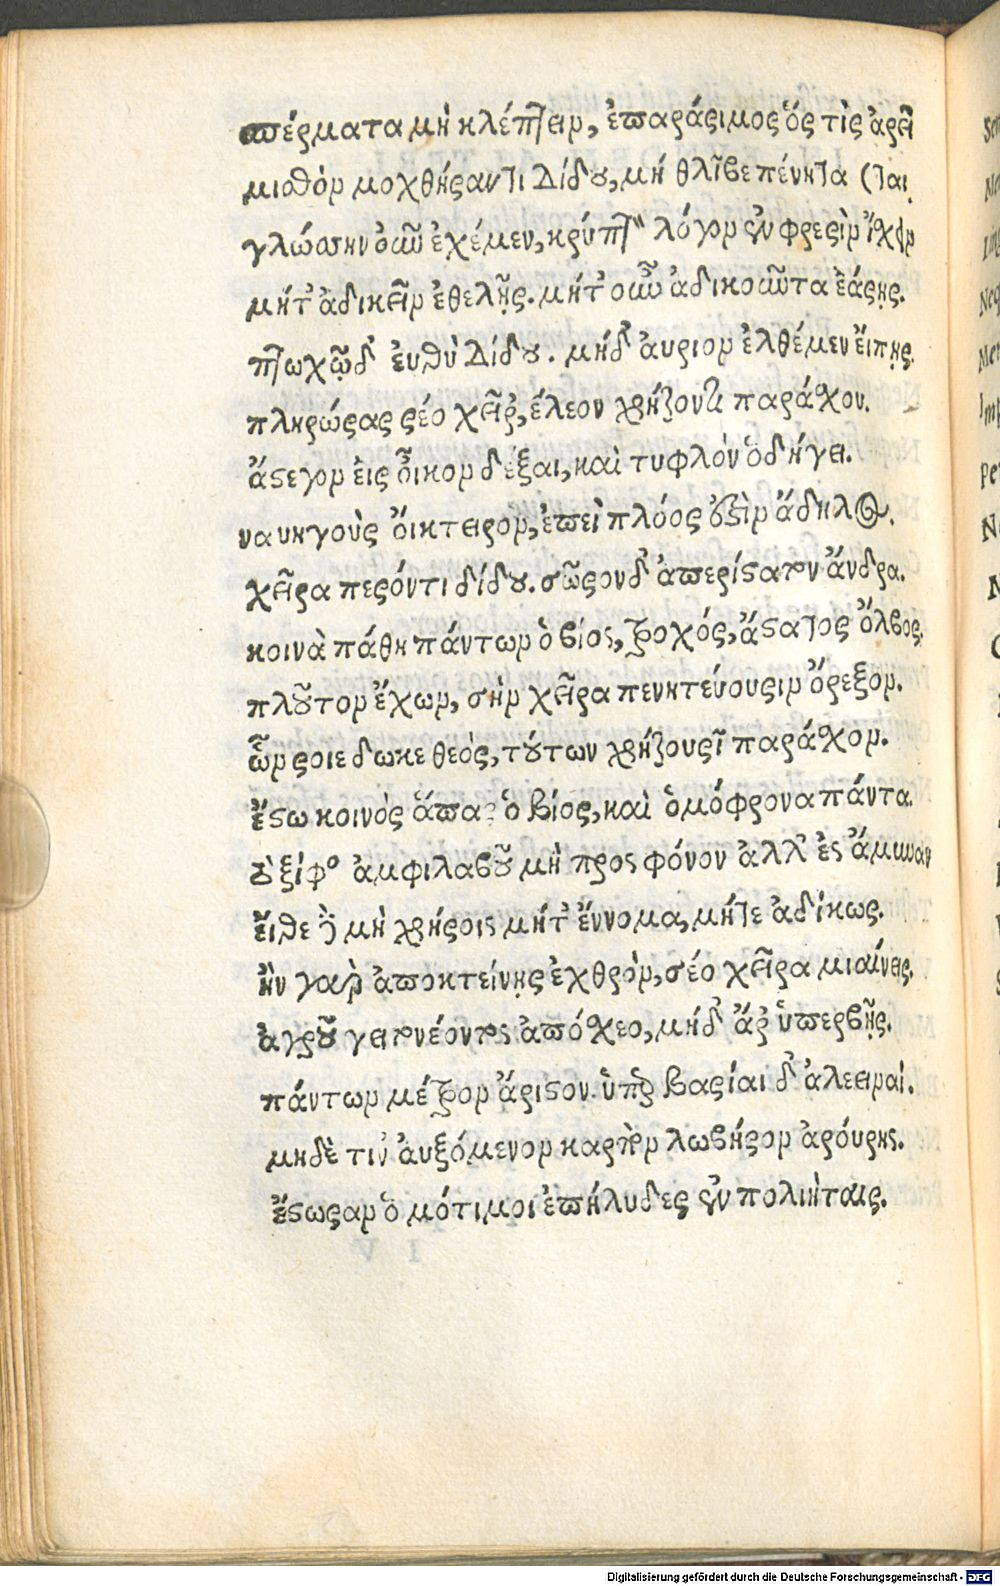 σπέρματα μὴ κλέπτειν, ἐπαράσιμος ὅς τις ἀρεῖ
μισθὸν μοχθήσαντι δίδου, μή θλῖβε πένητα (ται
γλώσσῃ νοῦν ἐχέμεν, κρυπτὸν λόγον ἐν φρεσὶν ἴσχειν
μήτ' ἀδικεῖν ἐθελῇς. μήτ' οὖν ἀδικοῦντα ἐάσῃς.
πτωχῷ δ' ἐυθὺ δίδου. μήδ' ἄυριον ἐλθέμεν ἔιπῃς.
πληρώσας σέο χεῖρ', ἔλεον χρήζοντι παράσχου.
ἄστεγον ἐις οἶκον δέξαι, καὶ τυφλὸν ὁδήγει.
ναυηγοὺς ὄικτειρον, ἐπεὶ πλόος ἐστὶν ἄδηλος.
χεῖρα πεσόντι δίδου. σῶσον δ' ἀπερίστατον ἄνδρα.
κοινὰ πάθη πάντων ὁ βίος, τροχός, ἄστατος ὄλβος.
πλοῦτον ἔχων, σὴν χεῖρα πενητεύουσιν ὄρεξον.
ὧν σοι ἐδωκε θεός, τούτων χρήζουσῖ παράσχον.
ἔστω κοινὸς ἅπας ὁ βίος, καὶ ὁμόφρονα πάντα.
ξίφος ἀμφιλαβοῦ μὴ προς φόνον ἀλλ' ἐς ἄμυναν
ἔιθε μὴ χρήσοις μήτ' ἔννομα, μήτε ἀδίκως.
ἢν γαρ ἀποκτείνῃς ἐχθρὸν, σέο χεῖρα μιαίνεις.
ἀγροῦ γειτονέοντος ἀπόσχεο, μήδ' ἄρ' ὑπερβῇς.
πάντων μέτρον ἄριστον. ὑπερβασίαι δ' ἀλεειναί.
μηδὲ τιν' ἀυξόμενον καρπὸν λωβήσον ἀρούρης.
ἔστωσαν ὁμότιμοι ἐπήλυδες ἐν πολιήταις.
Digitalisierung gefördert durch die Deutsche Forschungsgemeinschaft - DFG